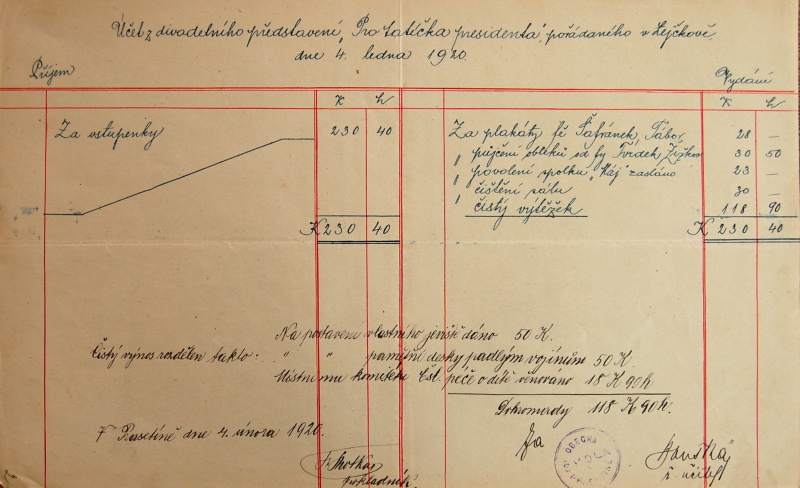 Účet z divadelního představení „Pro tatíčka presidenta“, pořádaného v Lejčkově
dne 4. ledna 1920.
Příjem
Vydání
K h
K h
Za vstupenky 230 40
K 230 40
Za plakáty fě Šafránek, Tábor 28 —
„ půjčení obleků od fy Tvrdek, Žižkov 30 50
„ povolení spolku „Máj“ zasláno 23 —
„ čištění sálu 30 —
„ čistý výtěžek 118 90
K 230 40
Na postavení vlastního jeviště dáno 50 K.
Čistý výnos rozdělen takto: „ „ pamětní desky padlým vojínům 50 K.
Místnímu komitétu Čsl. péče o dítě věnováno 18 K 90h
Dohromady 118 K 90h.
V dne 4. února 1920.
Za
pokladník
ř. učitel